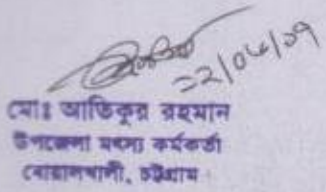 ২২/০৬/০৭
মোঃ আতিকুর রহমান
উপজেলা মৎস্য কর্মকর্তা
বোয়ালখালী, চট্টগ্রাম